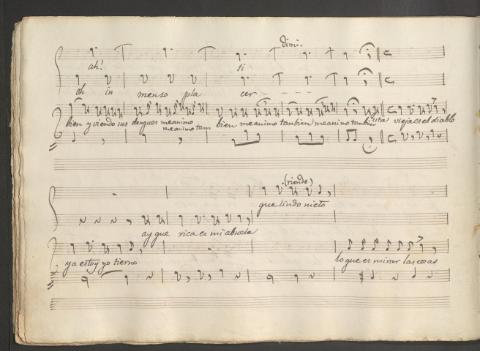 dimi.
ah! si
oh in menso pla cer
bien y viendo sus dengues me animo tambien me animo tambien me animo tambien esta vieja es el diablo
me animo tam
(riendo)
que lindo nieto
ay que rica es mi abuela
ya estoy yo tierno lo que es mirar las cosas